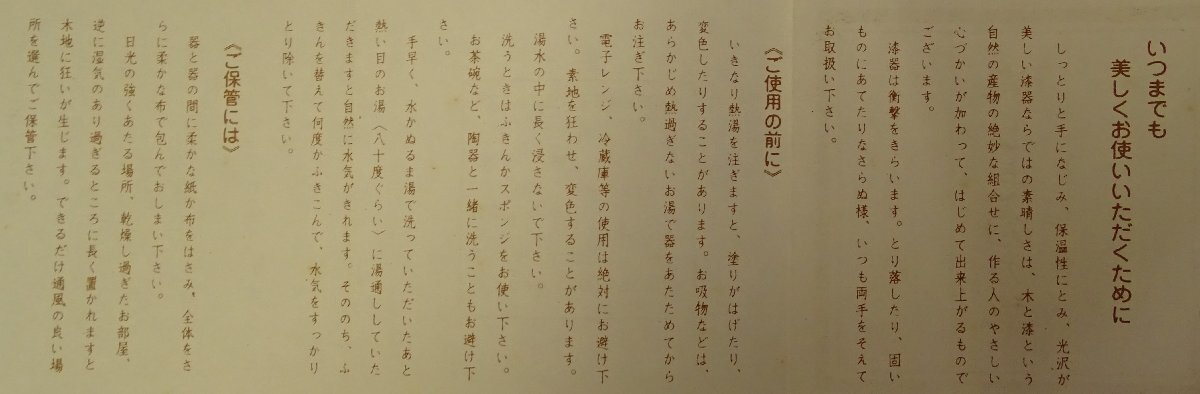 いつまでも
美しくお使いいただくために
しっとりと手になじみ、保温性にとみ、光沢が
美しい漆器ならではの素晴しさは、木と漆という
自然の産物の絶妙な組合せに、作る人のやさしい
心づかいが加わって、はじめて出来上がるもので
ございます。
漆器は衝撃をきらいます。とり落したり、固い
ものにあてたりなさらぬ様、いつも両手をそえて
お取扱い下さい。
《ご使用の前に》
いきなり熱湯を注ぎますと、塗りがはげたり、
変色したりすることがあります。お吸物などは、
あらかじめ熱過ぎないお湯で器をあたためてから
お注ぎ下さい。
電子レンジ、冷蔵庫等の使用は絶対にお避け下
さい。素地を狂わせ、変色することがあります。
湯水の中に長く浸さないで下さい。
洗うときはふきんかスポンジをお使い下さい。
お茶碗など、陶器と一緒に洗うこともお避け下
さい。
手早く、水かぬるま湯で洗っていただいたあと
熱い目のお湯（八十度ぐらい）に湯通ししていた
だきますと自然に水気がきれます。そののち、ふ
きんを替えて何度かふきこんで、水気をすっかり
とり除いて下さい。
《ご保管には》
器と器の間に柔かな紙か布をはさみ、全体をさ
らに柔かな布で包んでおしまい下さい。
日光の強くあたる場所、乾燥し過ぎたお部屋、
逆に湿気のあり過ぎるところに長く置かれますと
木地に狂いが生じます。できるだけ通風の良い場
所を選んでご保管下さい。